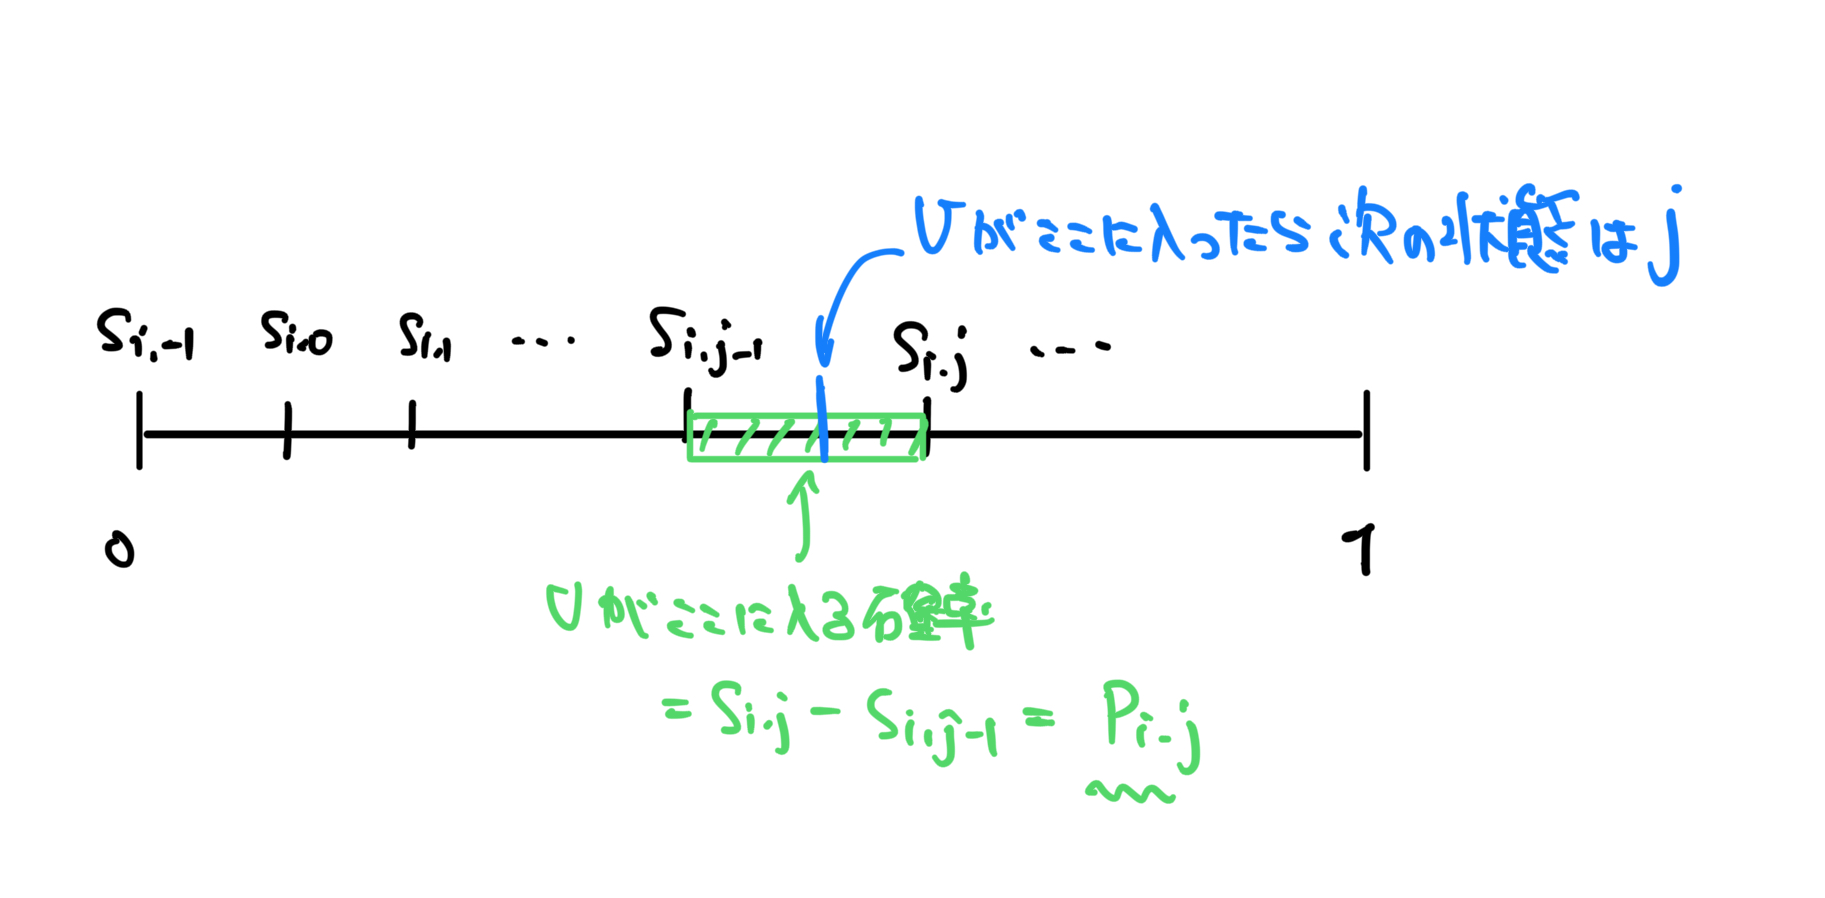 Uがここに入ったら次の状態はj
Si,-1 Si,0 Si,1 ... Si,j-1 Si,j ...
0 1
Uがここに入る確率
= Si,j - Si,j-1 = Pi,j